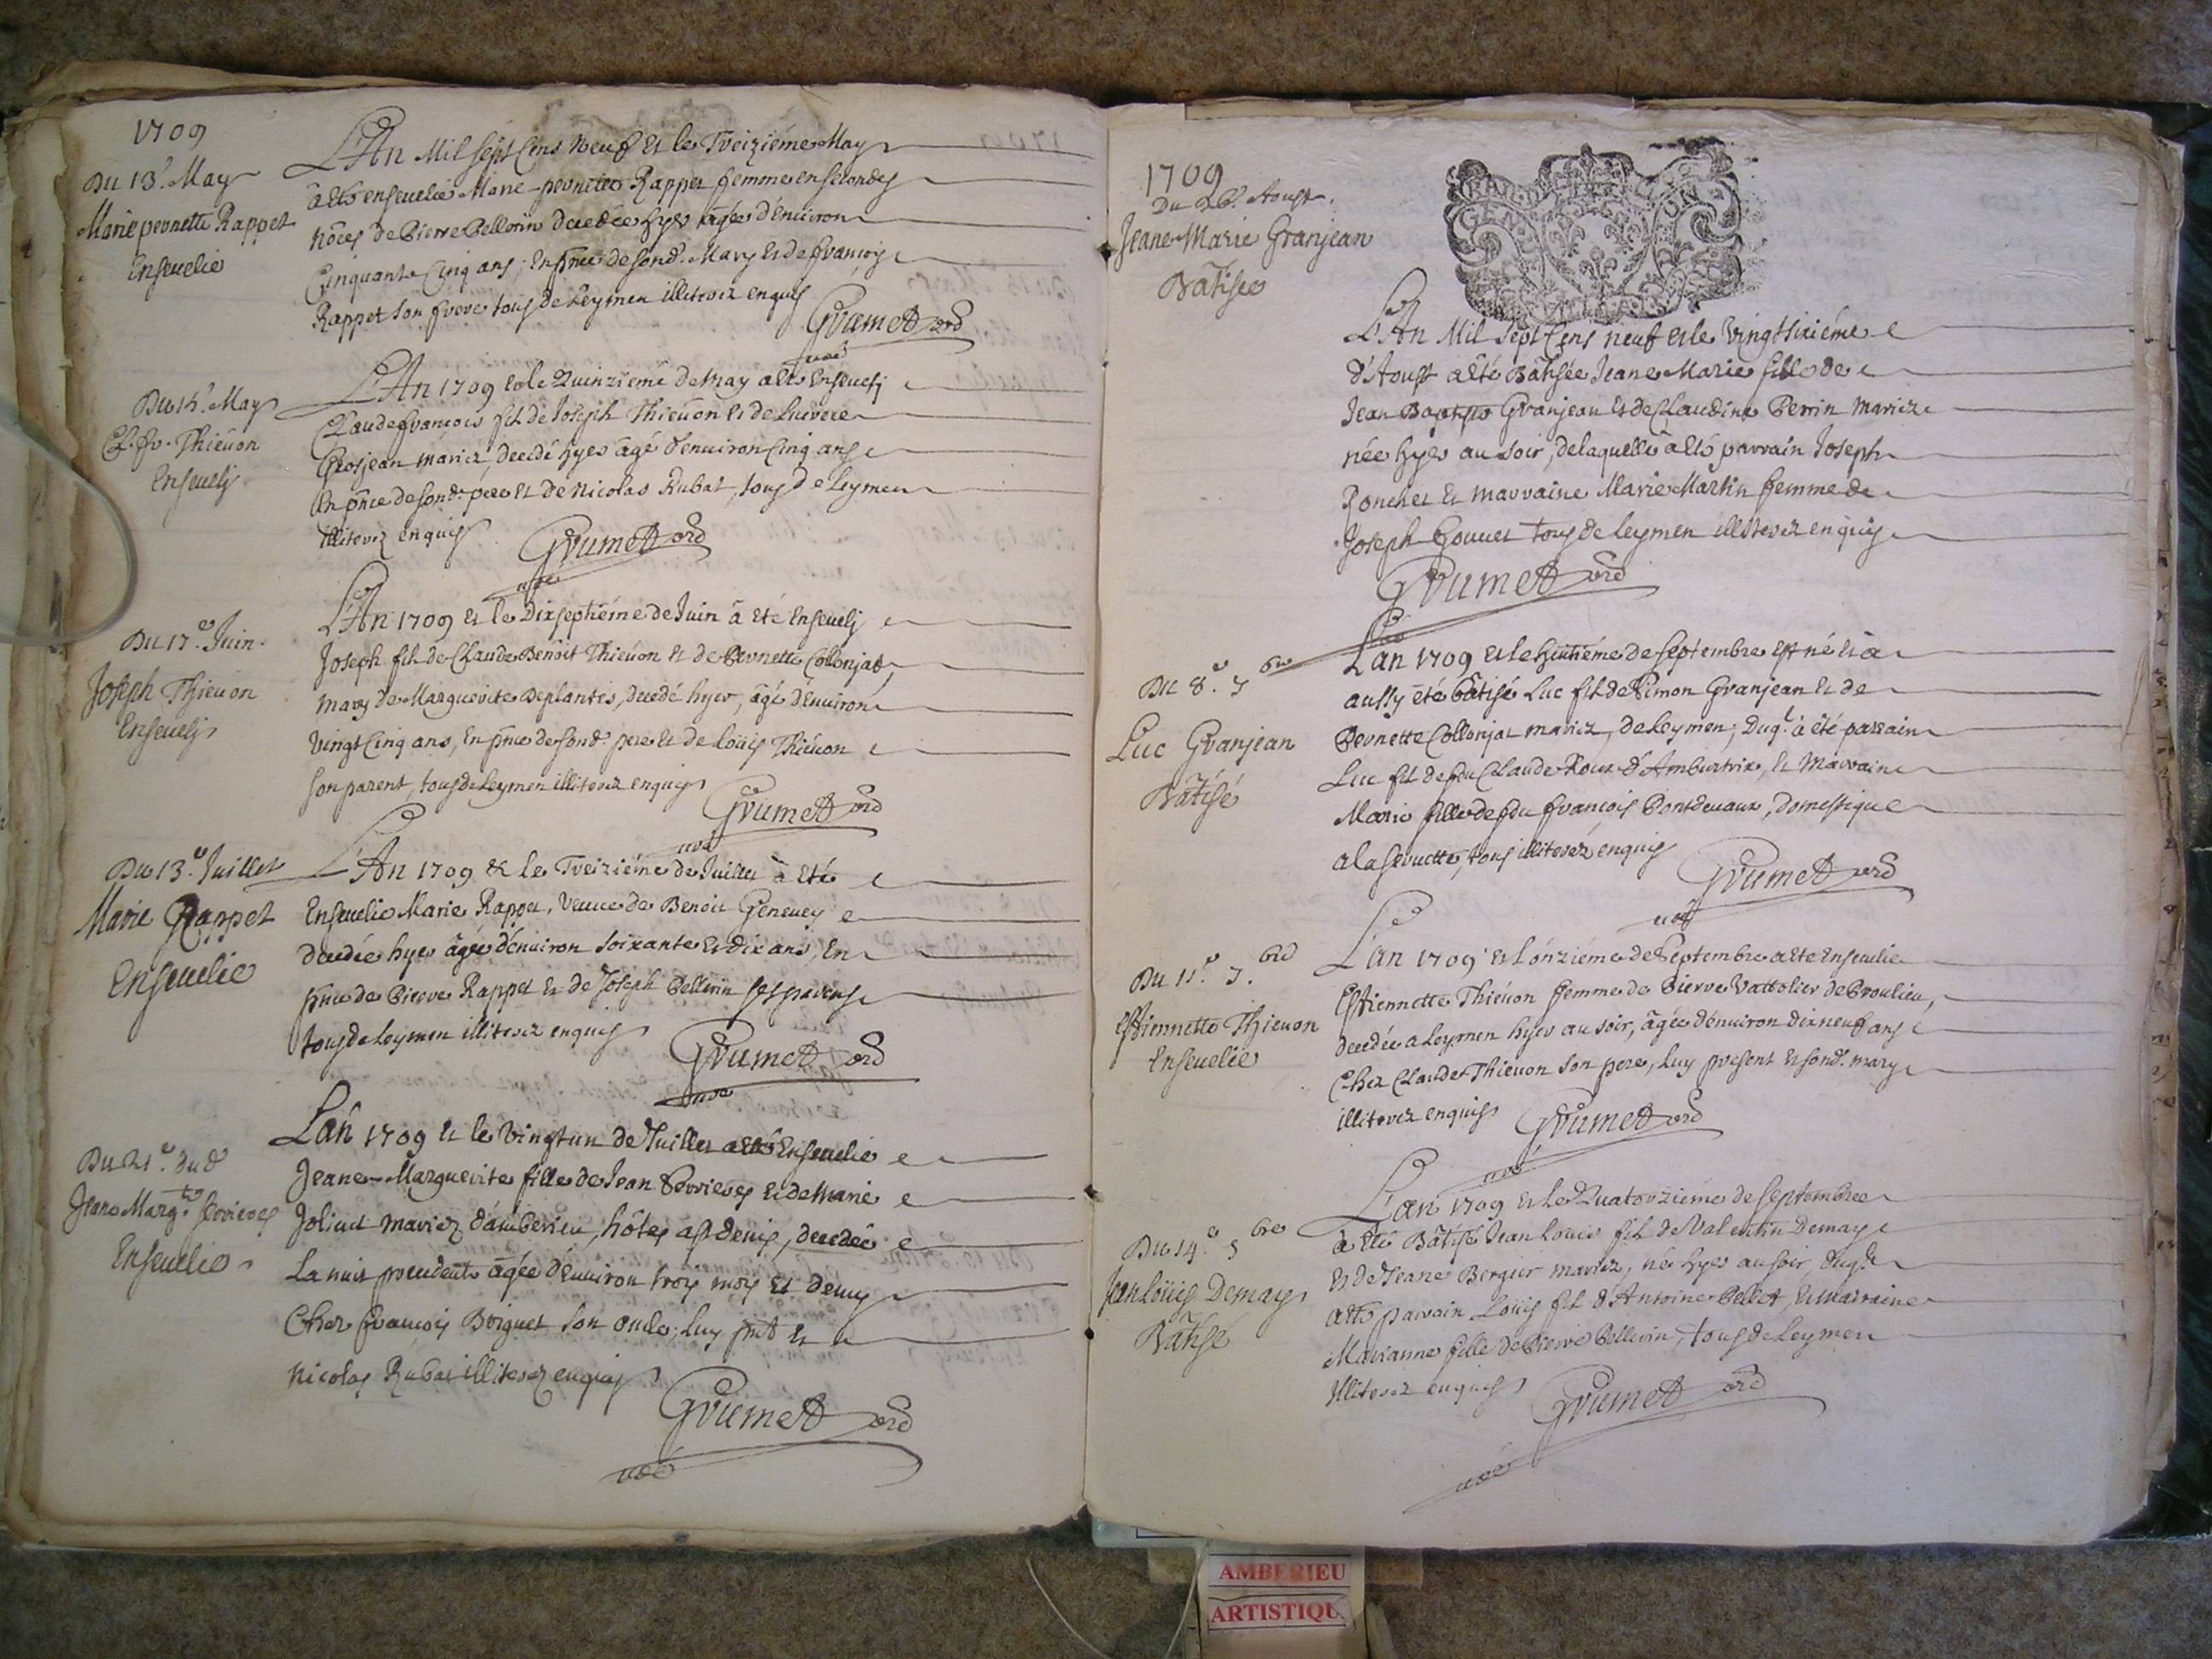 1709
Du 13e. May
Marie pernette Rappet
Ensevelie
L'An Mil sept Cens neuf et le Treiziéme May
a eté ensevelie Marie pernette Rappet femme en secondes
nôces de Pierre Pellerin decedée hyer âgée d'environ
Cinquante Cinq ans; En pnce de sond. Mary et de françois
Rappet son frere tous de Leymen illiterez enquis
Grumet ord
curé
Du 15e. May
Cl. fr. Thievon
Ensevelj
L'An 1709 et le Quinziéme de May a eté Ensevelj
Claude françois fil de Joseph Thievon et de
Grosjean mariez, decedé hyer âgé d'environ Cinq ans
En pnce de sond. pere et de Nicolas Rubat, tous de Leymen
illiterez enquis
Grumet ord
curé
Du 17e. Juin
Joseph Thievon
Ensevelj
L'An 1709 et le Dixseptiéme de Juin à eté Ensevelj
Joseph fil de Claude Benoit Thievon et de Pernette Collonjat,
mary de Marguerite Deplantes, decedé hyer, âgé d'environ
vingt Cinq ans, En pnce de sond. pere et de Loüis Thievon
son parent, tous de Leymen illiterez enquis
Grumet ord
curé
Du 13e. Juillet
Marie Rappet
Ensevelie
L'An 1709 & le Treiziéme de Juillet à eté
Ensevelie Marie Rappet, veuve de Benoit Genevey
decedée hyer âgée d'environ soixante et dix ans, En
pnce de Pierre Rappet et de Joseph Pellerin ses parens
tous de Leymen illiterez enquis
Grumet ord
curé
Du 21e. dud
Jeane Margte. Perrieres
Ensevelie
L'an 1709 et le vingt un de Juillet a eté Ensevelie
Jeane-Marguerite fille de Jean Perrieres et de Marie
Jolivet mariez d'amberieu, hôtes a St denis, decedée
La nuit precedente âgée d'Environ trois mois et demy
Chez françois Borguet son oncle; luy pnt et
Nicolas Rubat illiterez enquis
Grumet ord
curé
1709
Du 26. Aoust.
Jeane Marie Granjean
Bâtisée
GENERALITE
L'An Mil Sept Cens neuf et le Vingtsixiéme
d'Aoust a été Bâtisée Jeane Marie fille de
Jean Baptiste Granjean et de Claudine Perrin mariez
née hyer au soir, de laquelle a eté parrain Joseph
Ronchet et marraine Marie Martin femme de
Joseph Gouvet tous de Leymen illiterez enquis
Grumet ord
Du 8e. 7bre
Luc Granjean
Bâtisé
L'an 1709 et le huitiéme de septembre est né et a
aussy été bâtisé Luc fil de Simon Granjean et de
Pernette Collonjat mariez, de Leymen; Duql. à été parrain
Luc fil de feu Claude Roux d'Ambutrix, et Marraine
Marie fille de feu françois Pontdevaux, domestique
a la servette, tous illiterez enquis
Grumet ord
curé
Du 11e. 7bre
Estiennette Thievon
Ensevelie
L'an 1709 et L'ónziéme de Septembre a eté Ensevelie
Estiennette Thiévon femme de Pierre Vattolier de Proulieu,
decedée a Leymen hyer au soir, âgée d'environ dixneuf ans
Chez Claude Thievon son pere, luy present et sond. mary
illiterez enquis
Grumet ord
curé
Du 14e. 7bre
Jean Loüis Demay
Bâtisé
L'an 1709 et le Quatorziéme de septembre
à eté Bâtisé Jean Louis fil de Valentin Demay
et de Jeane Berger mariez, né hyer au soir, duql.
a eté parrain Loüis fil d'Antoine Pellet, et marraine
Marianne fille de Pierre Pellerin, tous de Leymen
Illiterez enquis
Grumet ord
curé
AMBERIEU
ARTISTIQU